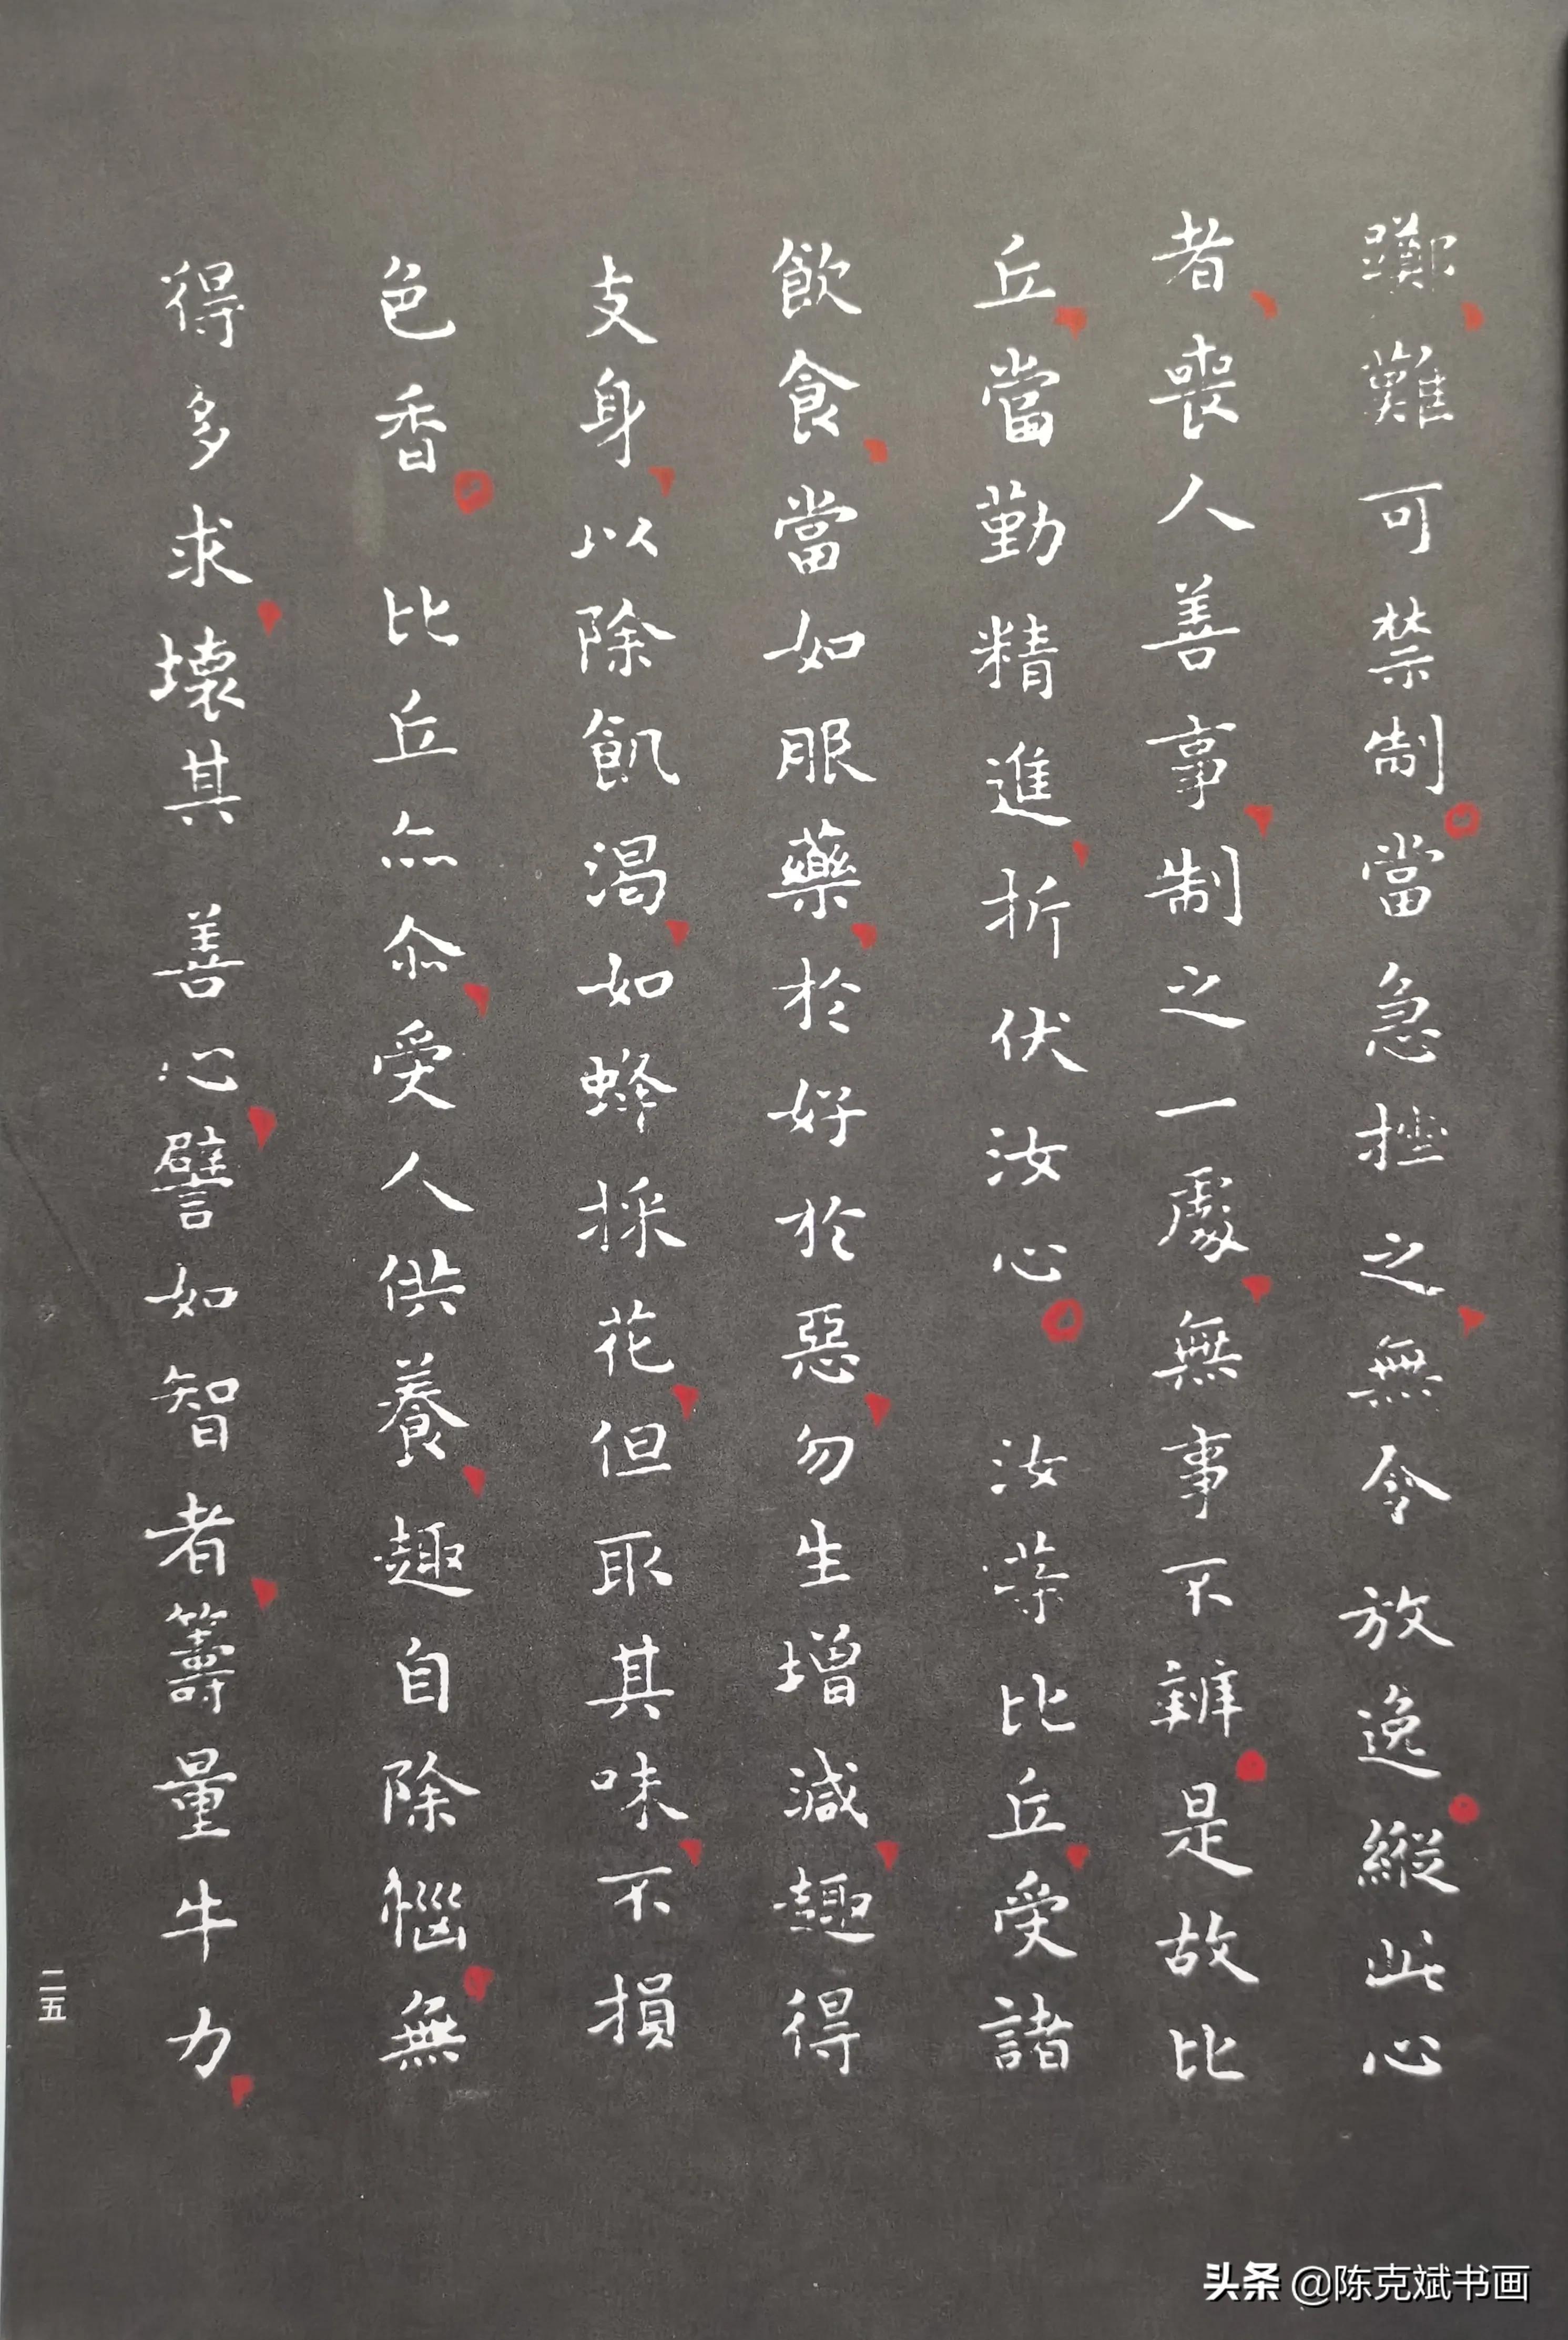 躑難可禁制當急挫之無令放逸縱此心
者喪人善事制之一處無事不辦是故比
丘當勤精進折伏汝心 汝等比丘受諸
飲食當如服藥於好於惡勿生增減趣得
支身以除飢渴如蜂採花但取其味不損
色香 比丘亦尒受人供養趣自除惱無
得多求壞其善心譬如智者籌量牛力
二五
头条 @陈克斌书画